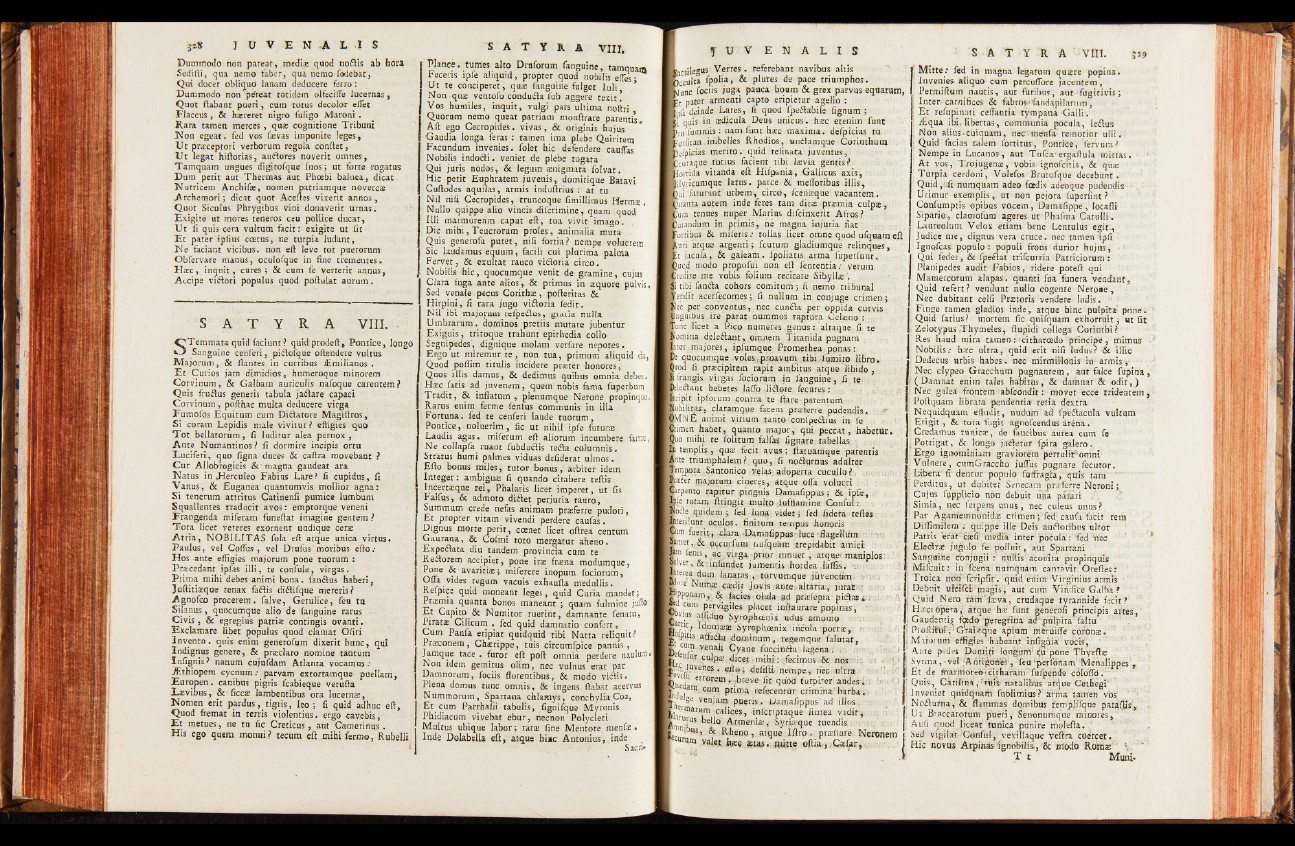 328 JUVENALIS
Dummodo non pereat, mediæ quod noctis ab hora
Sedisti, qua nemo faber, qua nemo sedebat,
Qui docet obliquo lanam deducere ferro:
Dummodo non pereat totidem olfecisse lucernas,
Quot stabant pueri, cum totus decolor esset
Flaccus, & hæreret nigro fuligo Maroni.
Rara tamen merces, quæ cognitione Tribuni
Non egeat. sed vos sævas imponite leges,
Ut præceptori verborum regula constet,
Ut legat historias, auctores noverit omnes,
Tamquam ungues digitosque suos; ut forte rogatus
Dum petit aut Thermas aut Phœbi balnea, dicat
Nutricem Anchisæ, nomen patriamque novercæ
Archemori; dicat quot Acestes vixerit annos,
Quot Siculus Phrygibus vini donaverit urnas.
Exigite ut mores teneros ceu pollice ducat,
Ut si quis cera vultum facit: exigite ut sit
Et pater ipsius cœtus, ne turpia ludant,
Ne faciant vicibus. non est leve tot puerorum
Observare manus, oculosque in fine trementes.
Hæc, inquit, cures; & cum se verterit annus,
Accipe victori populus quod postulat aurum.
SATYRA VIII.
STemmata quid faciunt? quid prodest, Pontice, longo
Sanguine censeri, pictosque ostendere vultus
Majorum, & stantes in curribus Æmilianos.
Et Curios jam dimidios, humeroque minorem
Corvinum, & Galbam auriculis nasoque carentem?
Quis fructus generis tabula jactare capaci
Corvinum, posthac multa deducere virga
Fumosos Equitum cum Dictatore Magistros,
Si coram Lepidis male vivitur? effigies quo
Tot bellatorum, si luditur alea pernox,
Ante Numantinos? si dormire incipis ortu
Luciferi, quo signa duces & castra movebant?
Cur Allobrogicis & magna gaudeat ara
Natus in Herculeo Fabius Lare? si cupidus, si
Vanus, & Euganea quantumvis mollior agna:
Si tenerum attritus Catinensi pumice lumbum
Squallentes traducit avos: emptorque veneni
Frangenda miseram funestat imagine gentem?
Tota licet veteres exornent undique ceræ
Atria, NOBILITAS sola est atque unica virtus.
Paulus, vel Cossos, vel Drusos moribus esto:
Hos ante effigies majorum pone tuorum:
Præcedant ipsas illi, te consule, virgas.
Prima mihi debes animi bona. sanctus haberi,
Justitiæque tenax factis dictisque mereris?
Agnosco procerem. salve, Getulice, seu tu
Silanus, quocumque alio de sanguine ratus
Civis, & egregius patriæ contingis ovanti.
Exclamare libet populus quod clamat Osiri
Invento. quis enim generosum dixerit hunc, qui
Indignus genere, & præclaro nomine tantum
Insignis? nanum cujusdam Atlanta vocamus:
Æthiopem cycnum: parvam extortamque puellam,
Europen. canibus pigris scabieque vetusta
Lævibus, & siccæ lambentibus ora lucernæ,
Nomen erit pardus, tigris, leo; si quid adhuc est,
Quod fremat in terris violentius. ergo cavebis,
Et metues, ne tu sic Creticus, aut Camerinus.
His ego quem monui? tecum est mihi sermo, Rubelli
SATYRA VIII.
Plance. tumes alto Drusorum sanguine, tamquam
Feceris ipse aliquid, propter quod nobilis esses;
Ut te conciperet, quæ sanguine fulget Iuli,
Non quæ ventoso conducta sub aggere texit.
Vos humiles, inquit, vulgi pars ultima nostri,
Quorum nemo queat patriam monstrare parentis.
Ast ego Cecropides. vivas, & originis hujus
Gaudia longa feras: tamen ima plebe Quiritem
Facundum invenies. solet hic defendere caussas
Nobilis indocti. veniet de plebe togata
Qui juris nodos, & legum ænigmata solvat.
Hic petit Euphratem juvenis, domitique Batavi
Custodes aquilas, armis industrius: at tu
Nil nisi Cecropides, truncoque simillimus Hermæ.
Nullo quippe alio vincis discrimine, quam quod
Illi marmoreum caput est, tua vivit imago.
Dic mihi, Teucrorum proles, animalia muta
Quis generosa putet, nisi fortia? nempe volucrem
Sic laudamus equum, facili cui plurima palma
Fervet, & exultat rauco victoria circo.
Nobilis hic, quocumque venit de gramine, cujus
Clara fuga ante alios, & primus in æquore pulvis.
Sed venale pecus Corithæ, posteritas &
Hirpini, si rara jugo victoria sedit.
Nil ibi majorum respectus, gratia nulla
Umbrarum. dominos pretiis mutare jubentur
Exiguis, tritoque trahunt epirhedia collo
Segnipedes, dignique molam versare nepotes.
Ergo ut miremur te, non tua, primum aliquid da,
Quod possim titulis incidere præter honores,
Quos illis damus, & dedimus quibus omnia debes.
Hæc satis ad juvenem, quem nobis fama superbum
Tradit, & inflatum, plenumque Nerone propinquo.
Rarus enim ferme sensus communis in illa
Fortuna. sed te censeri laude tuorum,
Pontice, noluerim, sic ut nihil ipse futuræ
Laudis agas. miserum est aliorum incumbere famæ,
Ne collapsa ruant subductis tecta columnis.
Stratus humi palmes viduas desiderat ulmos.
Esto bonus miles, tutor bonus, arbiter idem
Integer: ambiguæ si quando citabere testis
Incertæque rei, Phalaris licet imperet, ut sis
Falsus, & admoto dictet perjuria tauro,
Summum crede nefas animam præferre pudori,
Et propter vitam vivendi perdere causas.
Dignus morte perit, cœnet licet ostrea centum
Gaurana, & Cosmi toto mergatur aheno.
Expectata diu tandem provincia cum te
Rectorem accipiet, pone iræ fræna modumque,
Pone & avaritiæ; miserere inopum sociorum,
Ossa vides regum vacuis exhausta medullis.
Respice quid moneant leges, quid Curia mandet;
Præmia quanta bonos maneant; quam fulmine justo
Et Capito & Numitor ruerint, damnante senatu,
Piratæ Cilicum. sed quid damnatio confert,
Cum Pansa eripiat quidquid tibi Natta reliquit?
Præconem, Chærippe, tuis circumspice pannis,
Jamque tace. furor est post omnia perdere naulum.
Non idem gemitus olim, nec vulnus erat par
Damnorum, sociis florentibus, & modo victis.
Plena domus tunc omnis, & ingens stabat acervus
Nummorum, Spartana chlamys, conchylia Coa,
Et cum Parrhasii tabulis, signisque Myronis
Phidiacum vivebat ebur, necnon Polycleti
Multus ubique labor; raræ sine Mentore mensæ.
Inde Dolabella est, atque hinc Antonius, inde
Sacri-
JUVENALIS
Sacrilegus Verres. referebant navibus altis
Occulta spolia, & plures de pace triumphos.
Nunc sociis juga pauca boum & grex parvus equarum,
Et pater armenti capto eripietur agello:
Ipsi deinde Lares, si quod spectabile signum;
Si quis in ædicula Deus unicus. hæc etenim sunt
Pro summis: nam sunt hæc maxima. despicias tu
Forsitan imbelles Rhodios, unctamque Corinthum
Despicias merito. quid resinata juventus,
Cruraque totius facient tibi lævia gentis?
Horrida vitanda est Hispania, Gallicus axis,
Illyricumque latus. parce & messoribus illis,
Qui saturant urbem, circo, scenæque vacantem.
Quanta autem inde feres tam diræ præmia culpæ,
Cum tenues nuper Marius discinxerit Afros?
Curandum in primis, ne magna injuria fiat
Fortibus & miseris: tollas licet omne quod usquam est
Auri atque argenti; scutum gladiumque relinques,
Et jacula, & galeam. spoliatis arma supersunt.
Quod modo proposui non est sententia: verum
Credite me vobis folium recitare Sibyllæ.
Si tibi sancta cohors comitum; si nemo tribunal
Vendit acersecomes; si nullum in conjuge crimen;
Nec per conventus, nec cuncta per oppida curvis
Unguibus ire parat nummos raptura Celæno:
Tunc licet a Pico numeres genus: altaque si te
Nomina delectant, omnem Titanida pugnam
Inter majores, ipsumque Promethea ponas:
De quocumque voles proavum tibi sumito libro.
Quod si præcipitem rapit ambitus atque libido,
Si frangis virgas sociorum in sanguine, si te
Delectant hebetes lasso lictore secures:
Incipit ipsorum contra te stare parentum
Nobilitas, claramque facem præferre pudendis.
OMNE animi vitium tanto conspectius in se
Crimen habet, quanto major, qui peccat, habetur.
Quo mihi te solitum falsas signare tabellas
In templis, quæ fecit avus; statuamque parentis
Ante triumphalem? quo, si nocturnus adulter
Tempora Santonico velas adoperta cucullo?
Præter majorum cineres, atque ossa volucri
Carpento rapitur pinguis Damasippus; & ipse,
Ipse rotam stringit multo sufflamine Consul:
Nocte quidem; sed luna videt; sed sidera testes
Intendunt oculos. finitum tempus honoris
Cum fuerit, clara Damasippus luce flagellum
Sumet, & occursum nusquam trepidabit amici
Jam senis, ac virga prior innuet, atque maniplos
Solvet, & infundet jumentis hordea lassis.
Interea dum lanatas, torvumque juvencum
More Numæ cædit Jovis ante altaria, jurat
Hipponam, & facies olida ad præsepia pictas.
Sed cum pervigiles placet instaurare popinas,
Obvius assiduo Syrophœnix udus amomo
Currit, Idumææ Syrophœnix incola portæ,
Hospitis affectu dominum, regemque salutat,
Et cum venali Cyane succincta lagena.
Defensor culpæ dicet mihi: fecimus & nos
Hæc juvenes. esto; desisti nempe, nec ultra
Fovisti errorem. breve sit quod turpiter audes.
Quædam cum prima resecentur crimina barba.
Indulge veniam pueris. Damasippus ad illos
Thermarum calices, inscriptaque lintea vadit,
Maturus bello Armeniæ, Syriæque tuendis
Amnibus, & Rheno, atque Istro. præstare Neronem
Securum valet hæc ætas. mitte ostia, Cæsar,
SATYRA VIII. 329
Mitte: sed in magna legatum quære popina.
Invenies aliquo cum percussore jacentem,
Permistum nautis, aut furibus, aut fugitivis;
Inter carnifices & fabros sandapilarum,
Et resupinati cessantia tympana Galli.
Æqua ibi libertas, communia pocula, lectus
Non alius cuiquam, nec mensa remotior ulli.
Quid facias talem sortitus, Pontice, servum?
Nempe in Lucanos, aut Tusca ergastula mittas.
At vos, Trojugenæ, vobis ignoscitis, & quæ
Turpia cerdoni, Volesos Brutosque decebunt.
Quid, si numquam adeo fœdis adeoque pudendis
Utimur exemplis, ut non pejora supersint?
Consumptis opibus vocem, Damasippe, locasti
Sipario, clamosum ageres ut Phasma Catulli.
Laureolum Velox etiam bene Lentulus egit,
Judice me, dignus vera cruce. nec tamen ipsi
Ignoscas populo: populi frons durior hujus,
Qui sedet, & spectat triscurria Patriciorum:
Planipedes audit Fabios, ridere potest qui
Mamercorum alapas. quanti sua funera vendant,
Quid refert? vendunt nullo cogente Nerone,
Nec dubitant celsi Prætoris vendere ludis.
Finge tamen gladios inde, atque hinc pulpita pone.
Quid satius? mortem sic quisquam exhorruit, ut sit
Zelotypus Thymeles, stupidi collega Corinthi?
Res haud mira tamen: citharœdo principe, mimus
Nobilis: hæc ultra, quid erit nisi ludus? & illic
Dedecus urbis habes. nec mirmillonis in armis,
Nec clypeo Gracchum pugnantem, aut falce supina,
(Damnat enim tales habitus, & damnat & odit,)
Nec galea frontem abscondit: movet ecce tridentem,
Postquam librata pendentia retia dextra
Nequidquam effudit, nudum ad spectacula vultum
Erigit, & tota fugit agnoscendus arena.
Credamus tunicæ, de faucibus aurea cum se
Porrigat, & longo jactetur spira galero.
Ergo ignominiam graviorem pertulit omni
Vulnere, cum Graccho jussus pugnare secutor.
Libera si dentur populo suffragia, quis tam
Perditus, ut dubitet Senecam præferre Neroni;
Cujus supplicio non debuit una parari
Simia, nec serpens unus, nec culeus unus?
Par Agamemnonidæ crimen; sed caussa facit rem
Dissimilem. quippe ille Deis auctoribus ultor
Patris erat cæsi media inter pocula: sed nec
Electræ jugulo se polluit, aut Spartani
Sanguine conjugii: nullis aconita propinquis
Miscuit: in scena numquam cantavit Orestes:
Troica non scripsit. quid enim Virginius armis
Debuit ulcisci magis, aut cum Vindice Galba?
Quid Nero tam sæva, crudaque tyrannide fecit?
Hæc opera, atque hæ sunt generosi principis artes,
Gaudentis fœdo peregrina ad pulpita saltu
Prostitui, Graiæque apium meruisse coronæ.
Majorum effigies habeant insignia vocis,
Ante pedes Domiti longum tu pone Thyestæ
Syrma, vel Antigones, seu personam Menalippes,
Et de marmoreo citharam suspende colosso.
Quis, Catilina, tuis natalibus atque Cethegi
Inveniet quidquam sublimius? arma tamen vos
Nocturna, & flammas domibus templisque patastis,
Ut Braccatorum pueri, Senonumque minores,
Ausi quod liceat tunica punire molesta.
Sed vigilat Consul, vexillaque vestra coercet.
Hic novus Arpinas ignobilis, & modo Romæ
T t Muni-